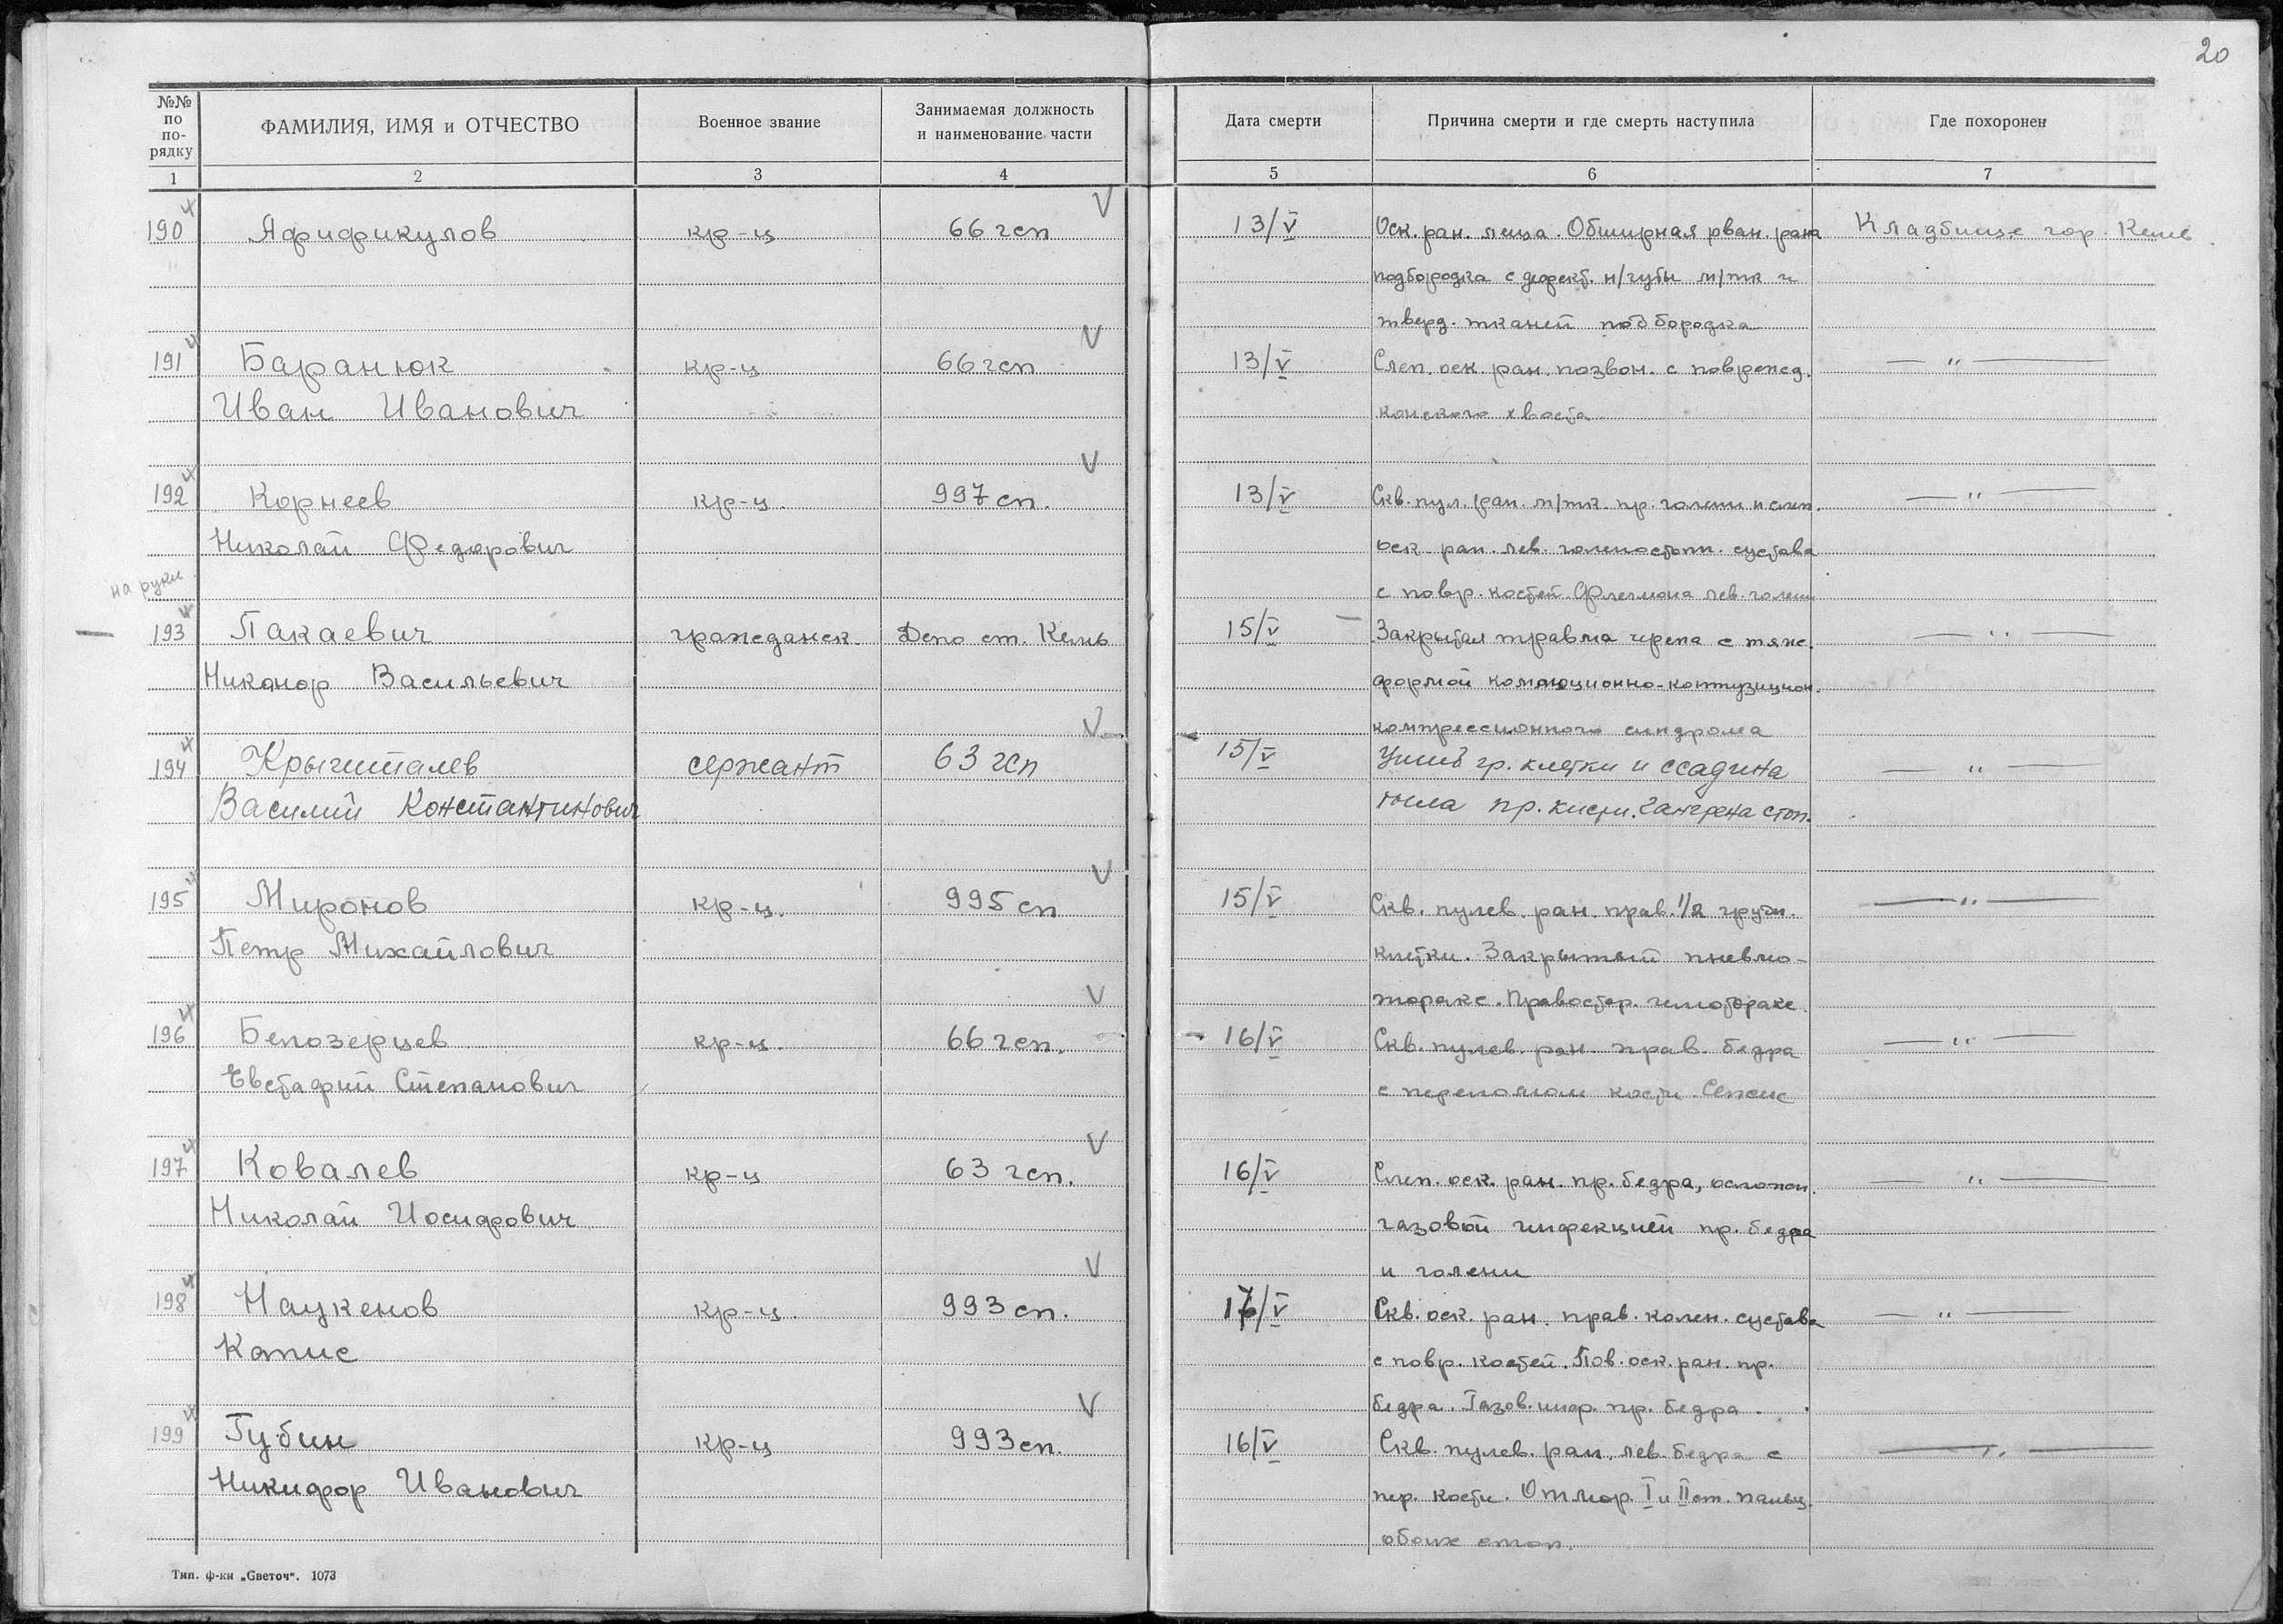 20
№№ по по-рядку
ФАМИЛИЯ, ИМЯ и ОТЧЕСТВО
Военное звание
Занимаемая должность и наименование части
Дата смерти
Причина смерти и где смерть наступила
Где похоронен
1 2 3 4 5 6 7
190 Афификулов кр-ц 66 гсп V 13/V Оск. ран. лица. Обширная рван. рана Кладбище гор. Кемь
подбородка с дефект. н/губы м/тк и
тверд. тканей подбородка
191 Баранюк кр-ц 66 гсп V 13/V Слеп. оск. ран. позвон. с поврежд. — " —
Иван Иванович конского хвоста
192 Корнеев кр-ц. 997 сп. V 13/V Скв. пул. ран. м/тк. пр. голени и слеп. — " —
Николай Федорович оск. ран. лев. голеностопн. сустава
на руки с повр. костей. Флегмона лев. голени
193 Пакаевич гражданск. Депо ст. Кемь 15/V Закрытая травма черепа с тяж. — " —
Никанор Васильевич формой коммоционно-контузицион.
компрессионного синдрома
194 Крычиталев сержант 63 гсп V 15/V Ушиб гр. клетки и ссадина — " —
Василий Константинович тыла пр. кисти. Гангрена стоп.
195 Миронов кр-ц. 995 сп V 15/V Скв. пулев. ран. прав. 1/2 грудн. — " —
Петр Михайлович клетки. Закрытый пневмо-
торакс. Правостор. гемоторакс.
196 Белозерцев кр-ц. 66 гсп. V 16/V Скв. пулев. ран. прав. бедра — " —
Евстафий Степанович с переломом кости. Сепсис
197 Ковалев кр-ц 63 гсп. V 16/V Слеп. оск. ран. пр. бедра, осложн. — " —
Николай Иосифович газовой инфекцией пр. бедра
и голени
198 Наукенов кр-ц. 993 сп. V 17/V Скв. оск. ран. прав. колен. сустава — " —
Капис с повр. костей. Пов. оск. ран. пр.
бедра. Газов. инф. пр. бедра.
199 Губин кр-ц 993 сп. V 16/V Скв. пулев. ран. лев. бедра с — " —
Никифор Иванович пер. кости. Отмор. I и II ст. пальц.
обоих стоп.
Тип. ф-ки „Светоч". 1073